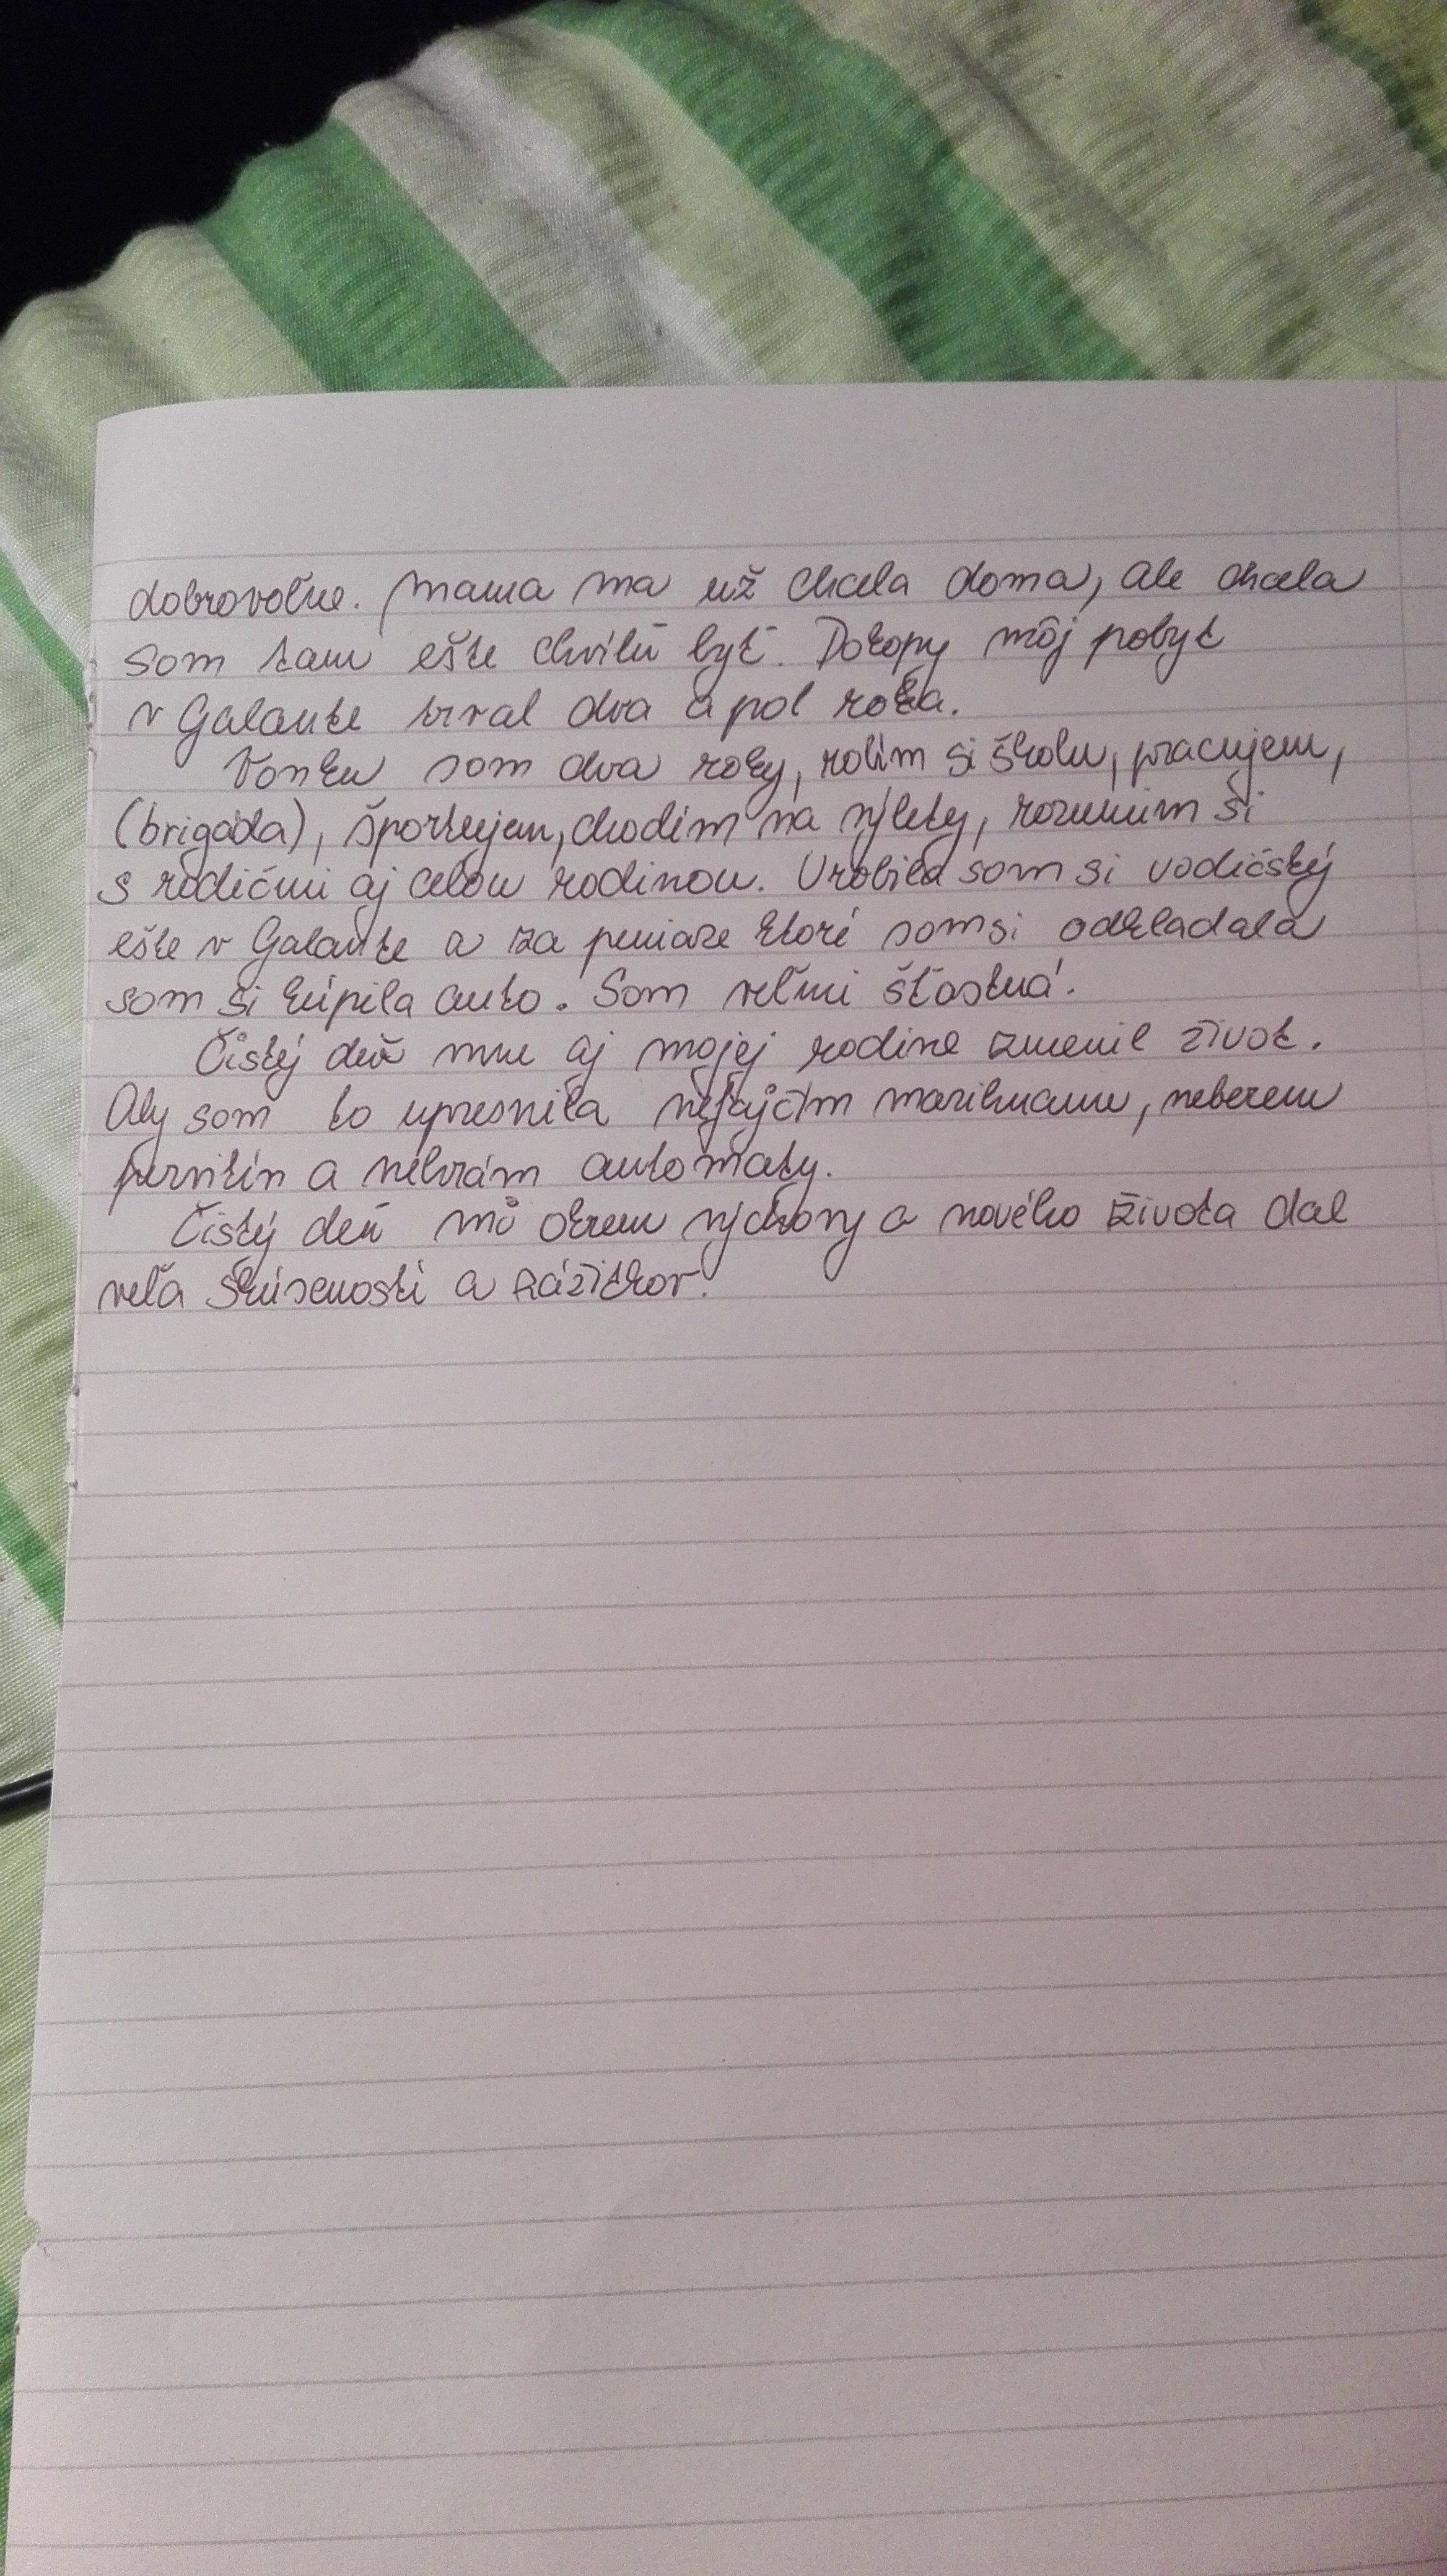 dobrovoľne. Mama ma už chcela doma, ale chcela
som tam ešte chvíľu byť. Dokopy môj pobyt
v Galante trval dva a pol roka.
Vonku som dva roky, robím si školu, pracujem,
(brigáda), športujem, chodím na výlety, rozumiem si
s rodičmi aj celou rodinou. Urobila som si vodičský
ešte v Galante a za peniaze ktoré som si odkladala
som si kúpila auto. Som veľmi šťastná.
Čistý deň mne aj mojej rodine zmenil život.
Aby som to upresnila nefajčím marihuanu, neberem
pervitín a nehrám automaty.
Čistý deň mi okrem výchovy a nového života dal
veľa skúseností a zážitkov.